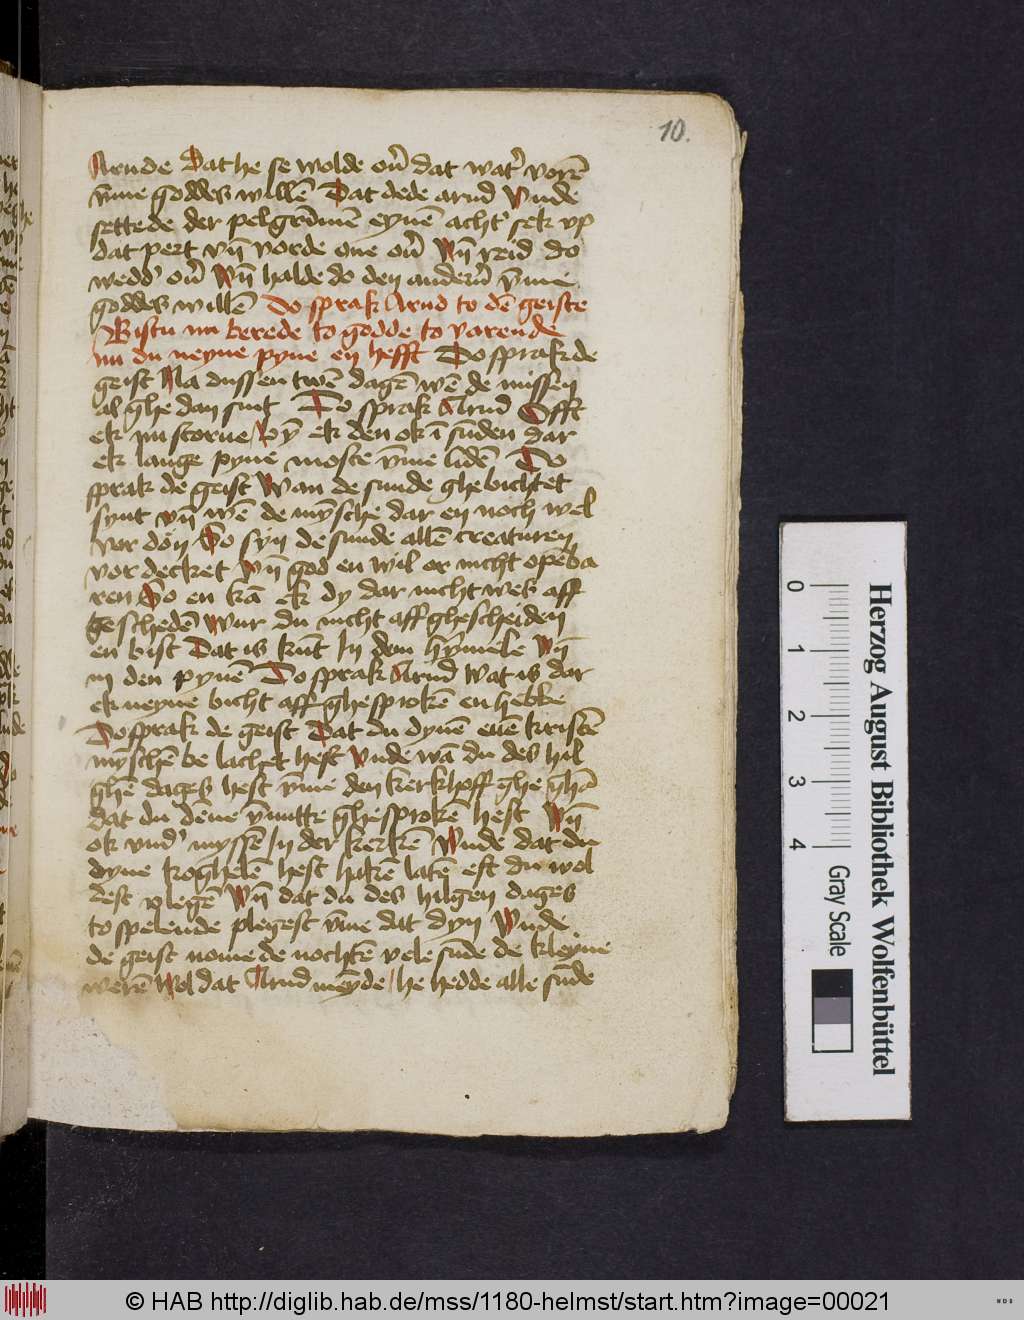 10.
Arnde Dat he se wolde ou̅ dat wat' vore̅
v̅me goddes wille̅ Dat dede arnd Unde
settede der pelgri̅me̅ eyne̅ acht' sek vp
dat pert vn̅ vorde one ou̅ Vn̅ reid do
wedd' ou̅ Vn̅ halde do den ander̅n v̅me
goddes wille̅ Do sprak Arnd to de̅ geiste
Bistu nu berede to godde to varende
nu du neyne pyne en hefft Do sprak de
geist Na dussen twe̅ dage̅ we̅ de missen
al ghe dan sint Do sprak Arnd Efft
ek nu storue Vo̅ ek den ok i̅ su̅den dar
ek lange pyne moste v̅me lide̅ Do
sprak de geist Wan de sunde ghebichtet
synt vn̅ we̅ de my̅sche dar en noch wel
vor don So syn de sunde alle̅ creaturen
vordecket Vn̅ god en wil or nicht ope̅ba
ren So en ka̅ ek dy dar nicht wes aff
geschede̅ Wur du nicht aff ghescheiden
en bist Dat is ku̅t In dem hy̅mele Vn̅
in den pyne̅ Do sprak Arnd Wat is dar
ek neyne bicht aff ghesproke̅ en hebbe
Do sprak de geist Dat du dyne̅ eue̅ kriste̅
my̅sche̅ be lachet hest Vnde wa̅ du des hil
ghe̅ dages hest v̅me den kerkhoff ghe gha̅
dat du de̅ne v̅nutte ghesproke̅ hest Vn̅
ok vnd' mysse̅ In der kerke̅ Vnde dat du
dyne koghele̅ hest hake̅ late̅ eft du wol
dest plege̅ Vn̅ dat du des hilgen dages
to spelende plegest v̅me dat dyn Vnde
de geist nome de nochte̅ vele su̅de de kleyne
were̅ Wol dat Arnd me̅yde he hedde alle su̅de
0 1 2 3 4
Gray Scale
Herzog August Bibliothek Wolfenbüttel
© HAB http://diglib.hab.de/mss/1180-helmst/start.htm?image=00021